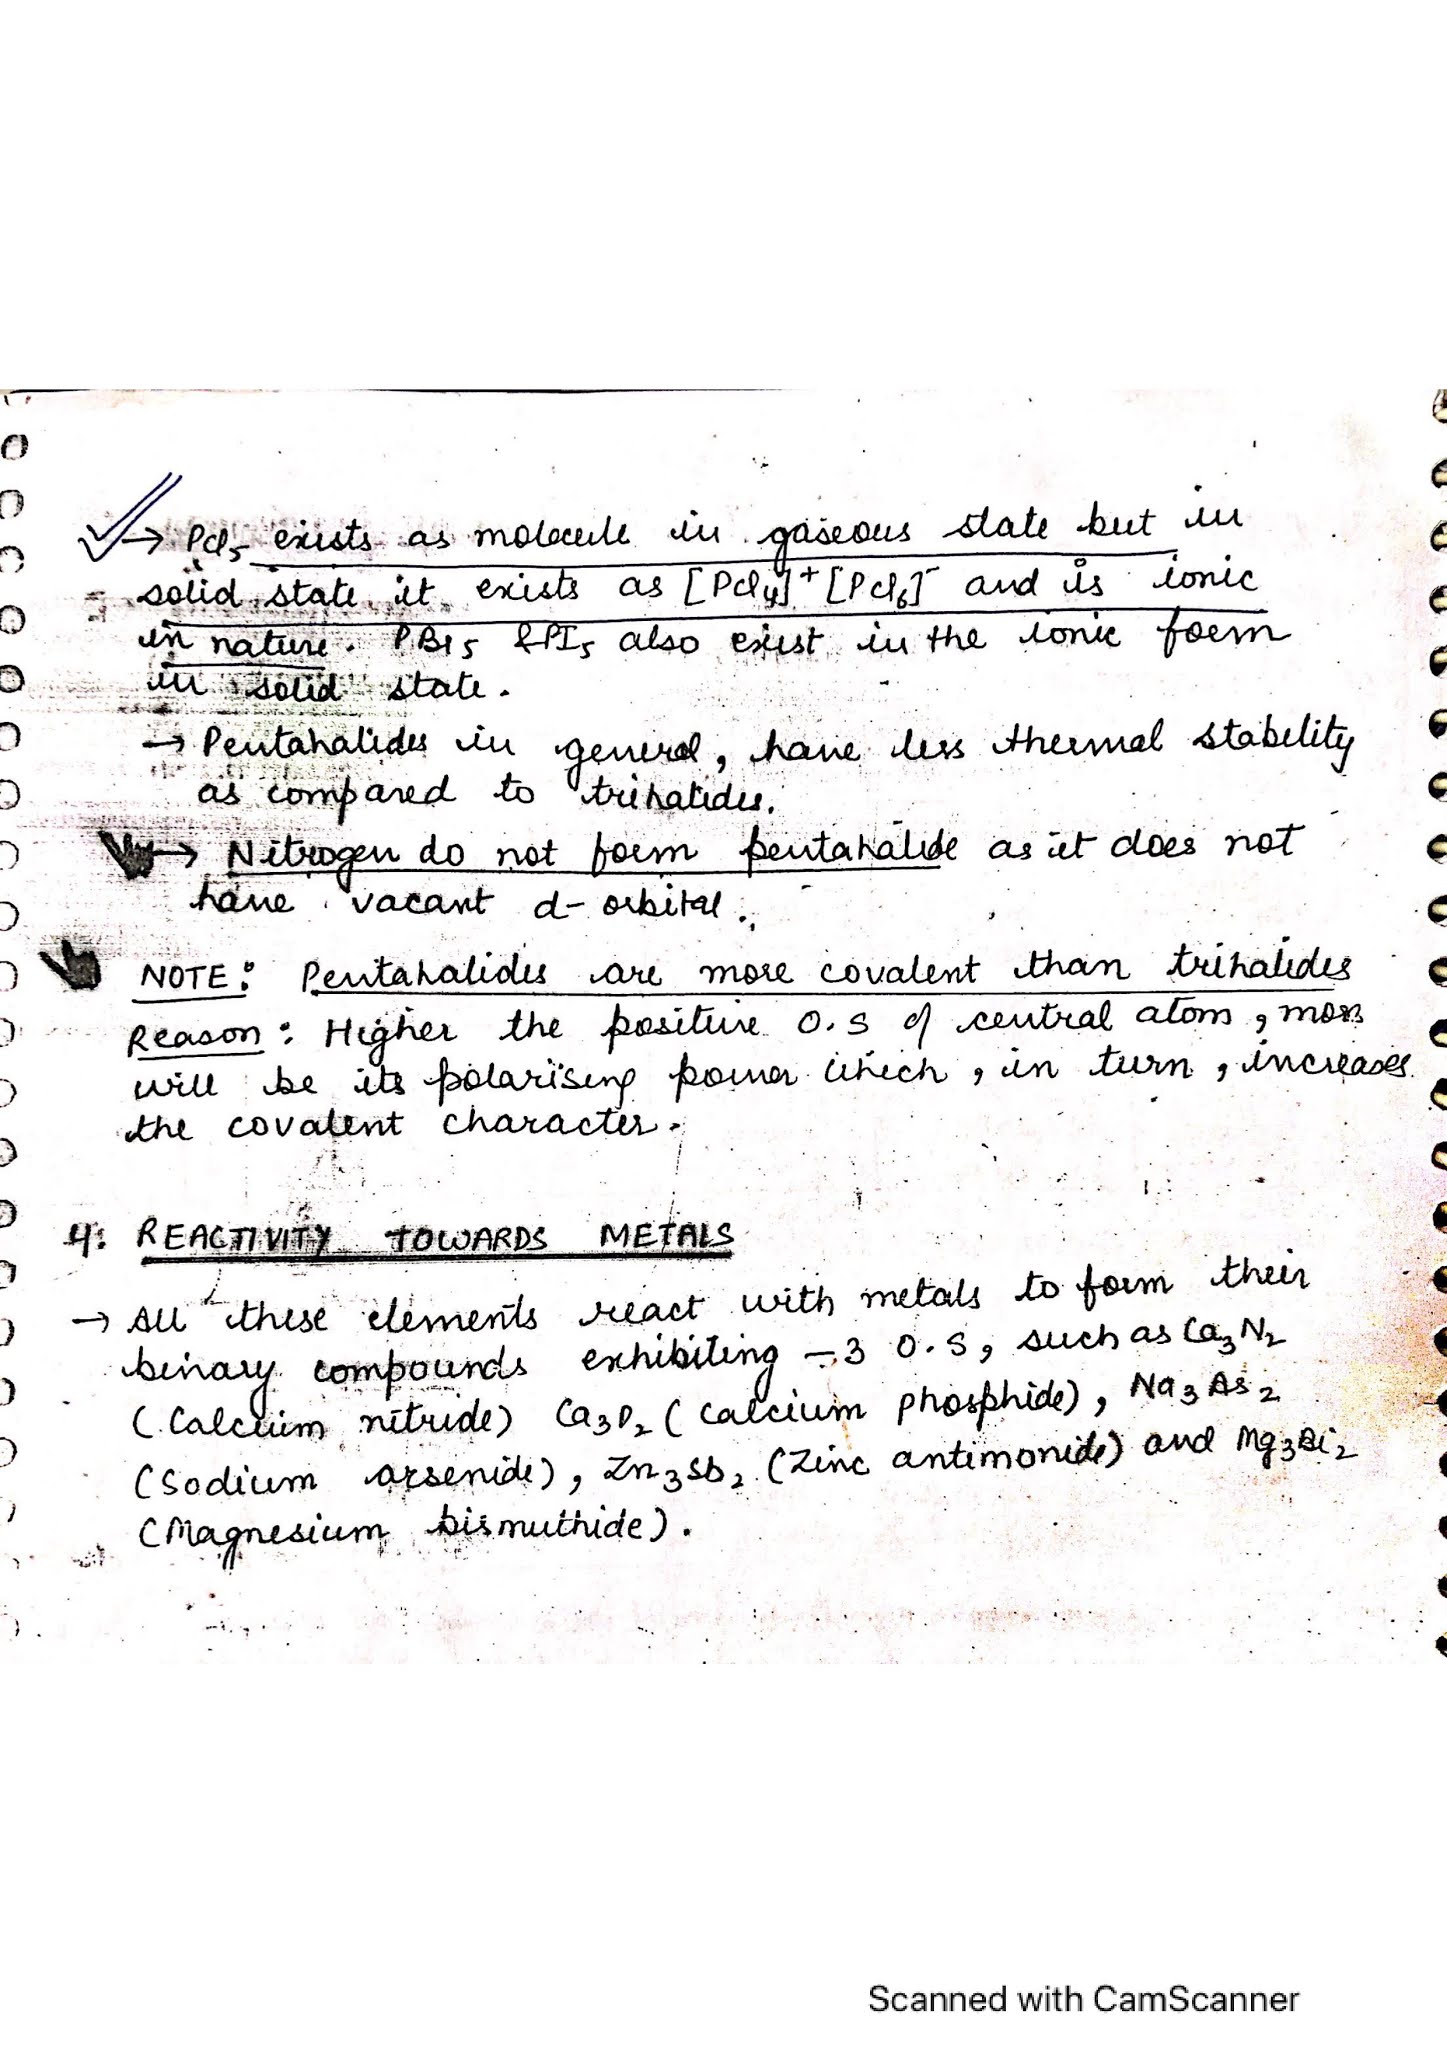 → PCl₅ exists as molecule in gaseous state but in
solid state it exists as [PCl₄]⁺[PCl₆]⁻ and is ionic
in nature. PBr₅ & PI₅ also exist in the ionic form
in solid state.
→ Pentahalides in general, have less thermal stability
as compared to trihalides.
→ Nitrogen do not form pentahalide as it does not
have vacant d-orbital.
NOTE: Pentahalides are more covalent than trihalides
Reason: Higher the positive O.S of central atom, more
will be its polarising power which, in turn, increases
the covalent character.
4. REACTIVITY TOWARDS METALS
→ All these elements react with metals to form their
binary compounds exhibiting -3 O.S, such as Ca₃N₂
(Calcium nitride) Ca₃P₂ (Calcium phosphide), Na₃As₂
(Sodium arsenide), Zn₃Sb₂ (Zinc antimonide) and Mg₃Bi₂
(Magnesium bismuthide).
Scanned with CamScanner